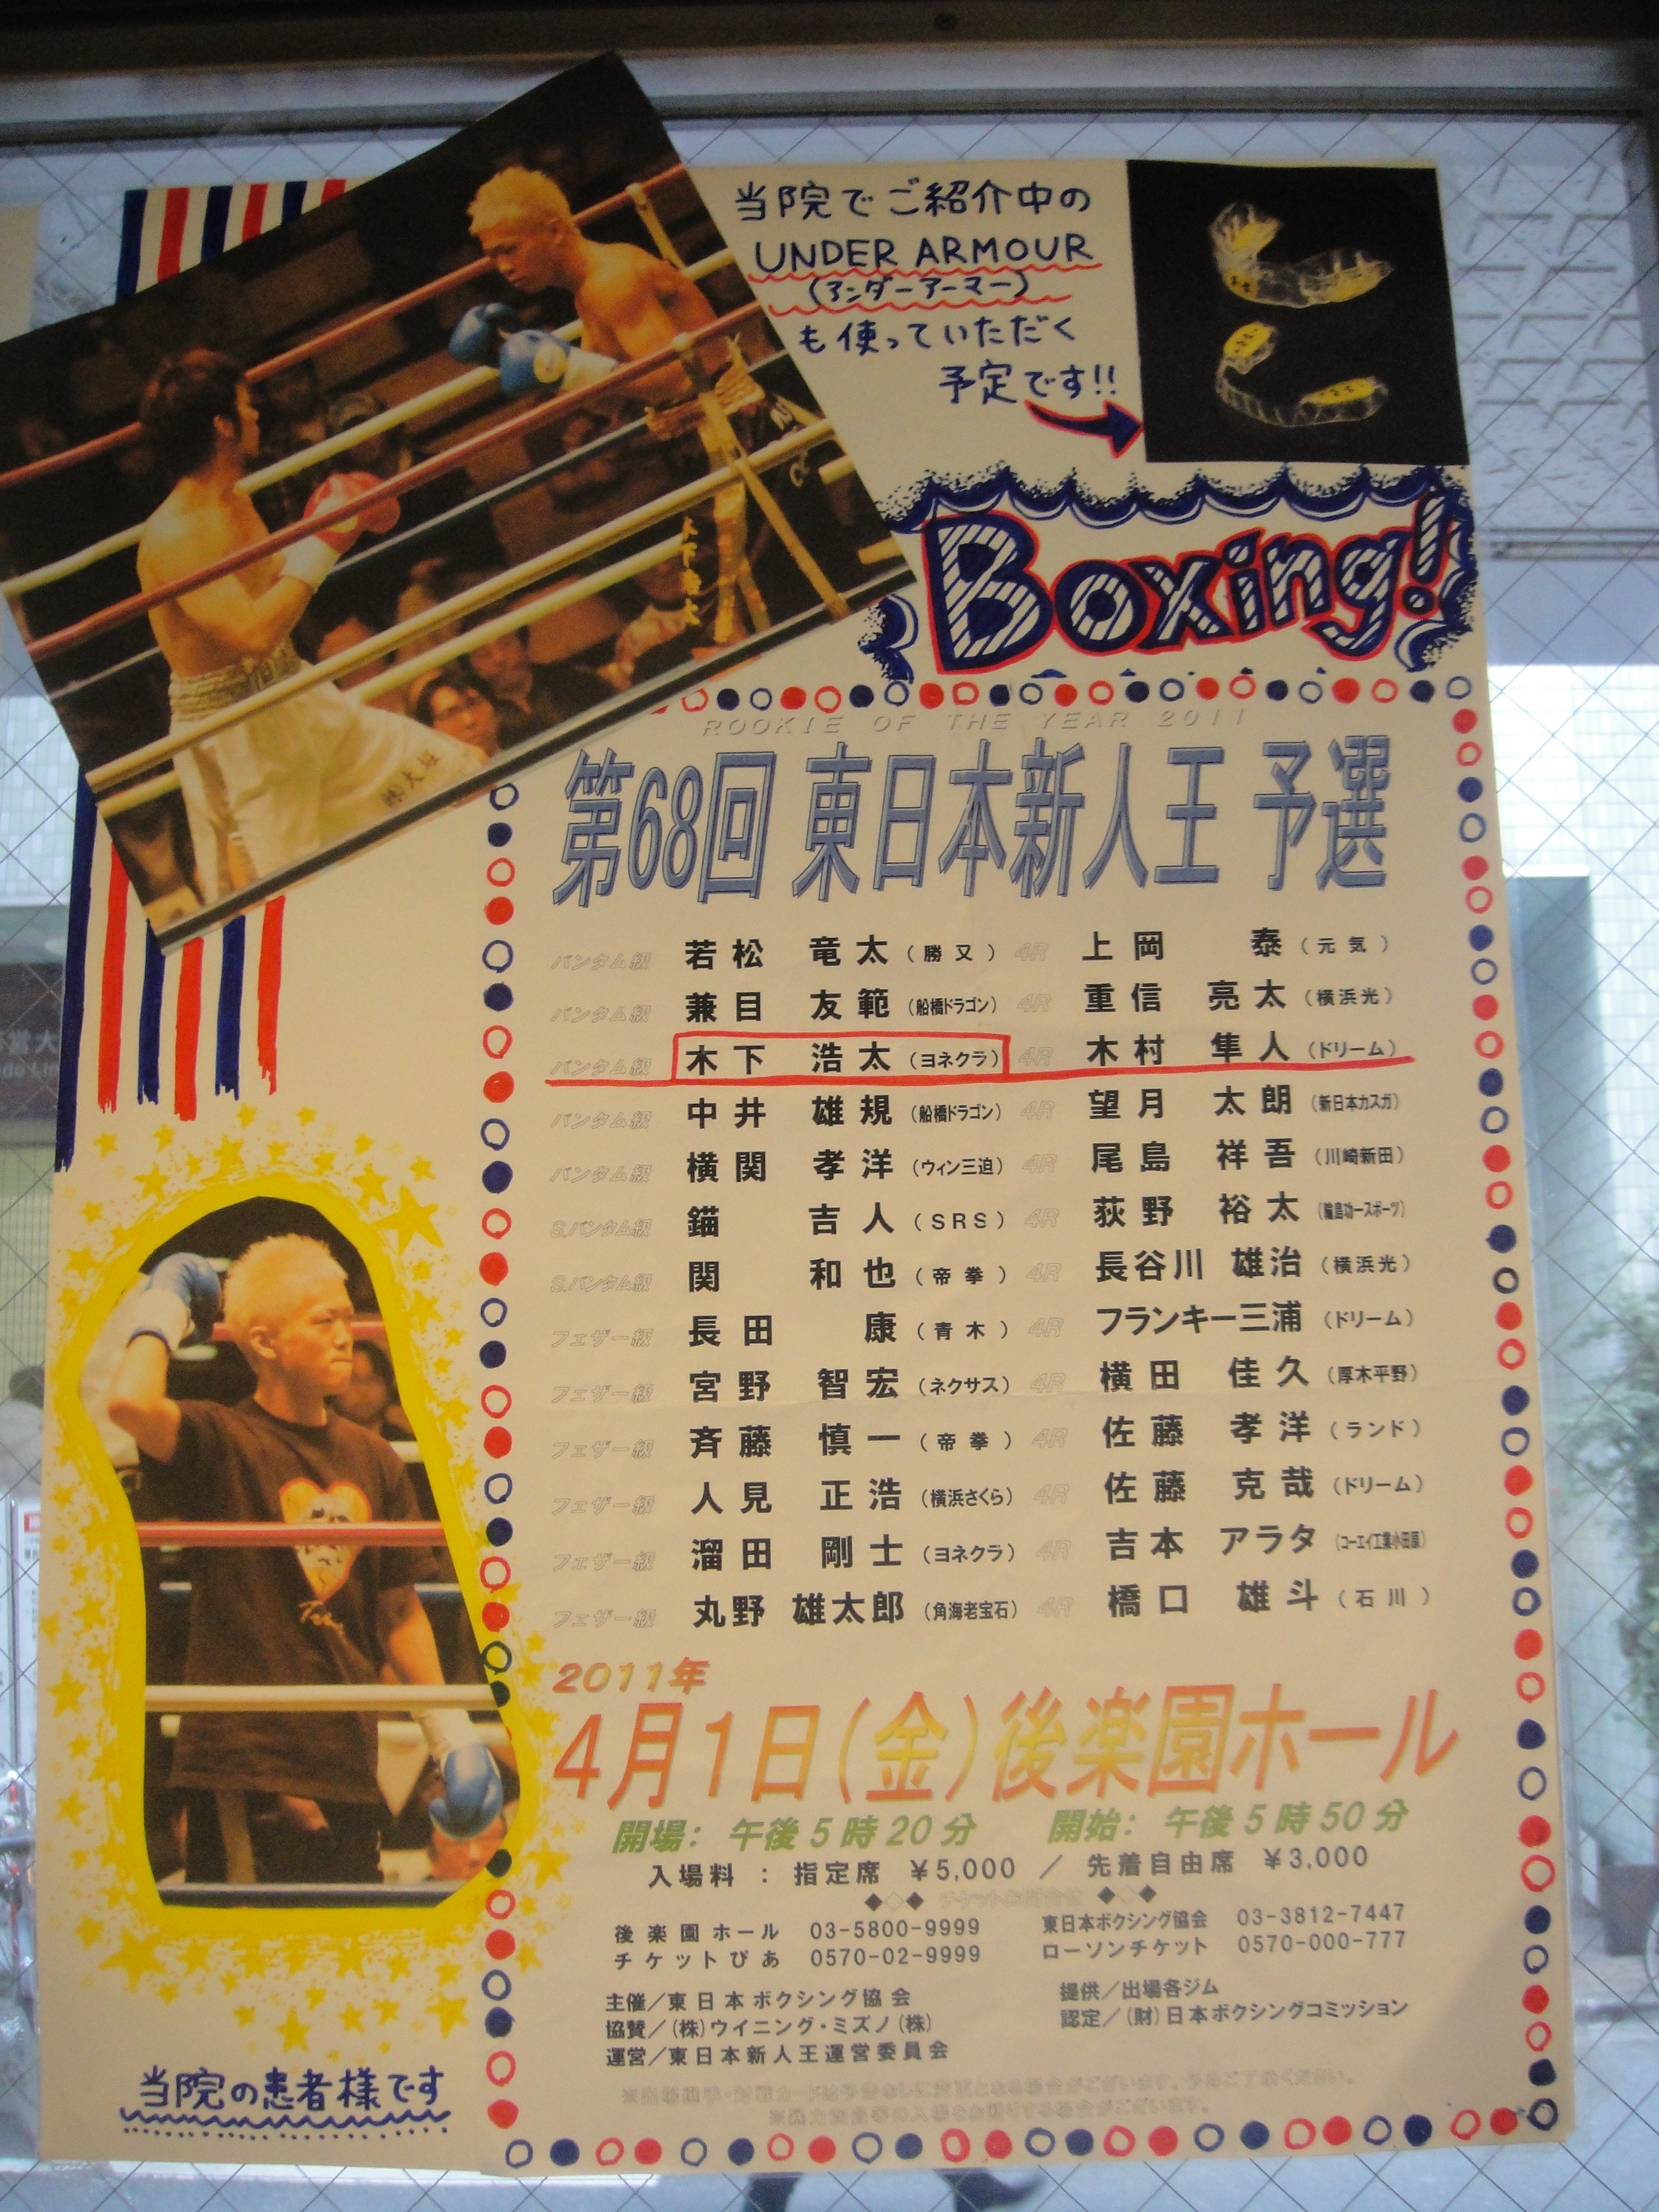 当院でご紹介中の
UNDER ARMOUR
(アンダーアーマー)
も使っていただく
予定です!!
Boxing!
木下浩太
ROOKIE OF THE YEAR 2011
第68回 東日本新人王 予選
バンタム級 若松 竜太 (勝又) 4R 上岡 泰 (元気)
バンタム級 兼目 友範 (船橋ドラゴン) 4R 重信 亮太 (横浜光)
バンタム級 木下 浩太 (ヨネクラ) 4R 木村 隼人 (ドリーム)
バンタム級 中井 雄規 (船橋ドラゴン) 4R 望月 太朗 (新日本カスガ)
バンタム級 横関 孝洋 (ウィン三迫) 4R 尾島 祥吾 (川崎新田)
S.バンタム級 錨 吉人 (SRS) 4R 荻野 裕太 (輪島功一スポーツ)
S.バンタム級 関 和也 (帝拳) 4R 長谷川 雄治 (横浜光)
フェザー級 長田 康 (青木) 4R フランキー三浦 (ドリーム)
フェザー級 宮野 智宏 (ネクサス) 4R 横田 佳久 (厚木平野)
フェザー級 斉藤 慎一 (帝拳) 4R 佐藤 孝洋 (ランド)
フェザー級 人見 正浩 (横浜さくら) 4R 佐藤 克哉 (ドリーム)
フェザー級 溜田 剛士 (ヨネクラ) 4R 吉本 アラタ (コーエイ工業小田原)
フェザー級 丸野 雄太郎 (角海老宝石) 4R 橋口 雄斗 (石川)
2011年
4月1日(金)後楽園ホール
開場: 午後5時20分 開始: 午後5時50分
入場料 : 指定席 ¥5,000 / 先着自由席 ¥3,000
◆◇◆ チケットお問合せ ◆◇◆
後楽園ホール 03-5800-9999 東日本ボクシング協会 03-3812-7447
チケットぴあ 0570-02-9999 ローソンチケット 0570-000-777
主催/東日本ボクシング協会 提供/出場各ジム
協賛/(株)ウイニング・ミズノ(株) 認定/(財)日本ボクシングコミッション
運営/東日本新人王運営委員会
当院の患者様です